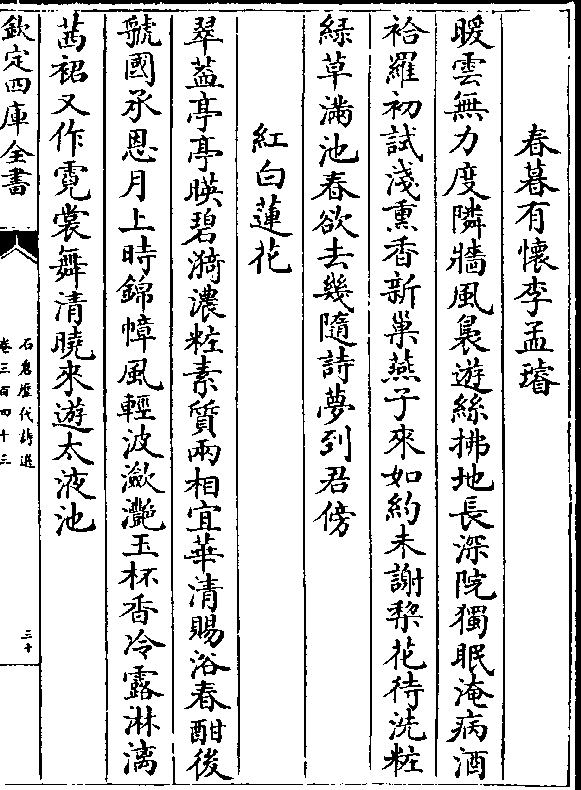 春暮有懷李孟璿
暖雲無力度隣牆風裊遊絲拂地長深院獨眠淹病酒
袷羅初試淺熏香新巢燕子來如約未謝棃花待洗粧
綠草滿池春欲去幾隨詩夢到君傍
紅白蓮花
翠葢亭亭暎碧漪濃粧素質兩相宜華清賜浴春酣後
虢國承恩月上時錦幛風輕波瀲灧玉杯香冷露淋漓
茜裙又作霓裳舞清曉來遊太液池
欽定四庫全書
石倉歷代詩選
卷三百四十三
三十